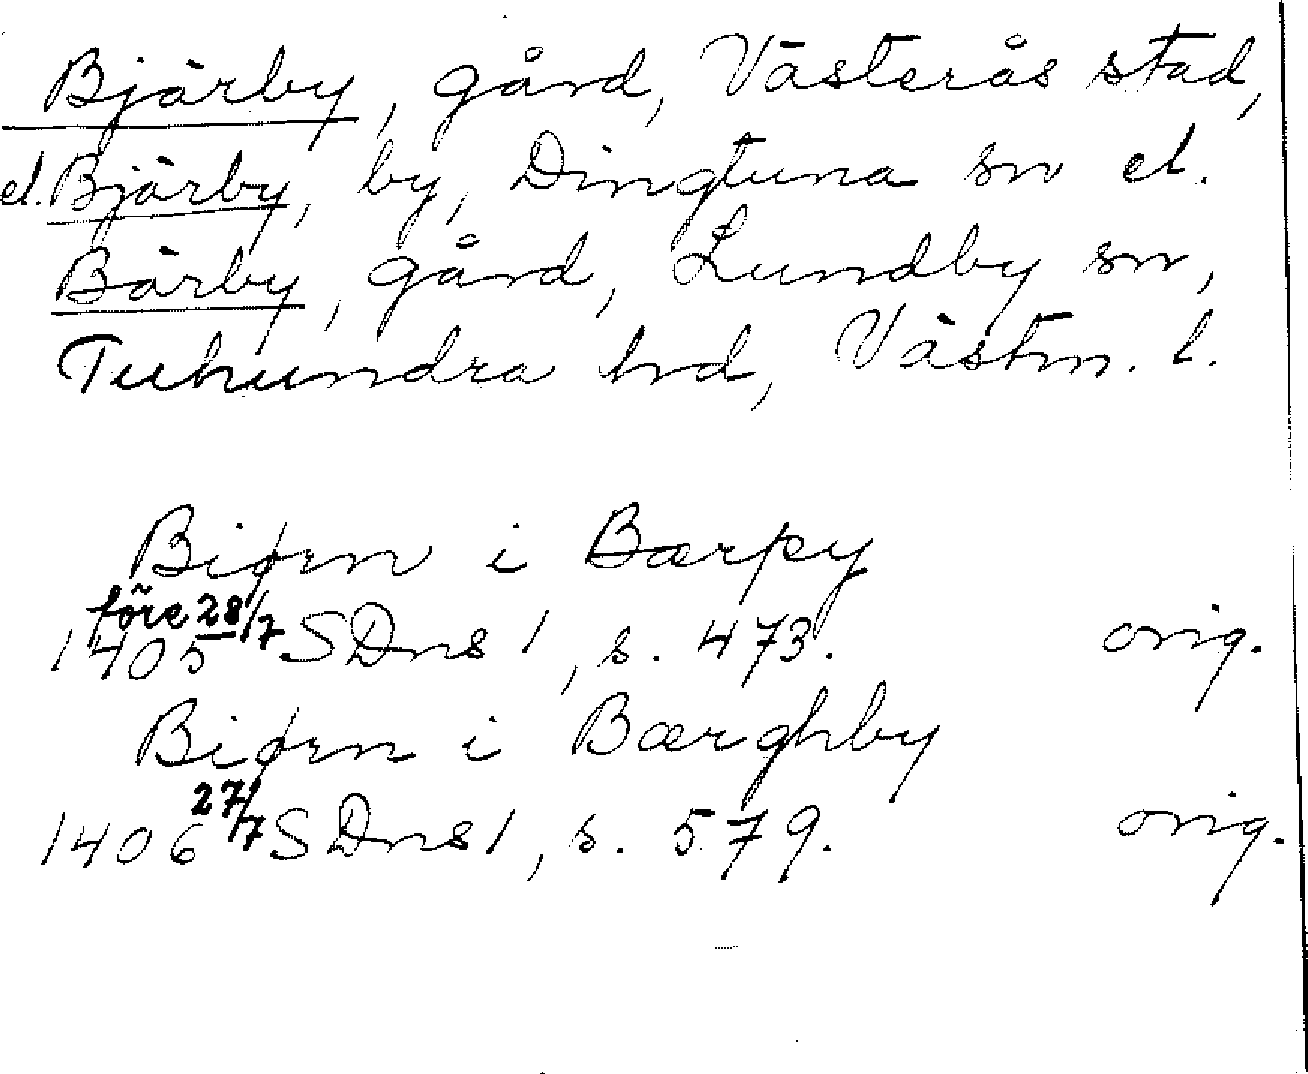 Bjärby, gård, Västerås stad,
el. Bjärby, by, Dingtuna sn el.
Bärby, gård, Lundby sn,
Tuhundra hd, Västm. l.
Biørn i Bærpy
före 28/7
1405 SDns 1, s. 473. orig.
Biørn i Bærghby
27/7
1406 SDns 1, s. 579. orig.